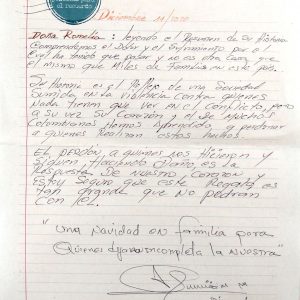 el Desacuerdo
Diciembre 11/2020
Doña Romelia: Leyendo el Resumen de su Historia
Comprendemos el Dolor y el sufrimiento por el
Cual ha tenido que pasar y no es otra cosa que
el mismo que Miles de Familias en este país.
Su Historia es el Reflejo de una Sociedad
Sumida en la violencia contra quienes
Nada tienen que ver en el Conflicto, pero
a su vez su Corazón y el de Muchos
Colombianos Hemos Aprendido a perdonar
a quienes Realizan estos hechos.
EL PERDÓN, A quienes nos Hirieron y
Siguen, Haciendo Daño, es la
Respuesta De nuestro Corazón y
Estoy Segura que este Regalo es
tan grande que no podrán
Con Él.
"Una Navidad en familia para
Quienes dejaron incompleta la nuestra"